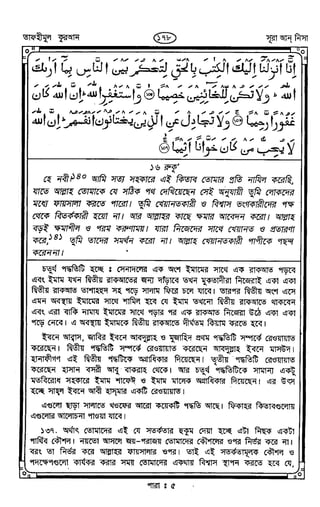 তাফহীমুল কুরআন
১৭৮
সূরা আন্ নিসা
إِنَّا أَنزَلْنَا إِلَيْكَ الْكِتٰبَ بِالْحَقِّ لِتَحْكُمَ بَيْنَ النَّاسِ بِمَا أَرٰىكَ
اللهُ ۚ وَلَا تَكُن لِّلْخَائِنِينَ خَصِيمًا ۝ وَّاسْتَغْفِرِ اللهَ ۖ إِنَّ اللهَ كَانَ
غَفُورًا رَّحِيمًا ۝ وَلَا تُجَادِلْ عَنِ الَّذِينَ يَخْتَانُونَ أَنفُسَهُمْ ۚ إِنَّ اللهَ
لَا يُحِبُّ مَن كَانَ خَوَّانًا أَثِيمًا ۝
১৬ রুকূ'
হে নবী!১৪০ আমি সত্য সহকারে এই কিতাব তোমার প্রতি নাযিল করেছি,
যাতে আল্লাহ তোমাকে যে সঠিক পথ দেখিয়েছেন সেই অনুযায়ী তুমি লোকদের
মধ্যে ফায়সালা করতে পারো। তুমি খেয়ানতকারী ও বিশ্বাস ভংগকারীদের পক্ষ
থেকে বিতর্ককারী হয়ো না। আর আল্লাহর কাছে ক্ষমার আবেদন করো। আল্লাহ
বড়ই ক্ষমাশীল ও পরম করুণাময়। যারা নিজেদের সাথে খেয়ানত ও প্রতারণা
করে,১৪১ তুমি তাদের সমর্থন করো না। আল্লাহ খেয়ানতকারী পাপীকে পছন্দ
করেননা।
চতুর্থ পদ্ধতিটি হচ্ছে : সেনাদলের এক অংশ ইমামের সাথে এক রাকআত পড়বে
এবং ইমাম যখন দ্বিতীয় রাকআতের জন্য দাঁড়াবে তখন মুকতাদীরা নিজেরাই একা একা
দ্বিতীয় রাকআত তাশাহহুদ সহ পড়ে সালাম ফিরে চলে যাবে। তারপর দ্বিতীয় অংশ এসে
এমন অবস্থায় ইমামের সাথে শামিল হবে যে ইমাম তখনো দ্বিতীয় রাকআতে থাকবেন
এবং এরা বাকি নামায ইমামের সাথে পড়ার পর এক রাকআত নিজেরা উঠে একা একা
পড়ে নেবে। এ অবস্থায় ইমামকে দ্বিতীয় রাকআতে দীর্ঘতম কিয়াম করতে হবে।
ইবনে আব্বাস, জাবির ইবনে আবদুল্লাহ ও মুজাহিদ প্রথম পদ্ধতিটি সম্পর্কে রেওয়ায়াত
করেছেন। দ্বিতীয় পদ্ধতিটি সম্পর্কে রেওয়ায়াত করেছেন আবদুল্লাহ ইবনে মাসউদ।
হানাফীগণ এই দ্বিতীয় পদ্ধতিকে অগ্রাধিকার দিয়েছেন। তৃতীয় পদ্ধতিটি রেওয়ায়াত
করেছেন হাসান বসরী আবু বাকরাহ থেকে। আর চতুর্থ পদ্ধতিটিকে সামান্য একটু
মতবিরোধ সহকারে ইমাম শাফেঈ ও ইমাম মালেক অগ্রাধিকার দিয়েছেন। এর উৎস
হচ্ছে সাহল ইবনে আবী হাস্‌মার একটি রেওয়ায়াত।
এগুলো ছাড়া সালাতে খওফের আরো কয়েকটি পদ্ধতি আছে। ফিকাহর কিতাবগুলোয়
এগুলোর আলোচনা পাওয়া যাবে।
১৩৭. অর্থাৎ তোমাদের এই যে সতর্কতার হুকুম দেয়া হচ্ছে এটা নিছক একটা
পার্থিব কৌশল। নয়তো আসলে জয়-পরাজয় তোমাদের কৌশলের ওপর নির্ভর করে না।
বরং তা নির্ভর করে আল্লাহর ফায়সালার ওপর। তাই এই সতর্কতামূলক কৌশল ও
পদক্ষেপগুলো কার্যকর করার সময় তোমাদের একথায় বিশ্বাস স্থাপন করতে হবে যে,
পারা : ৫